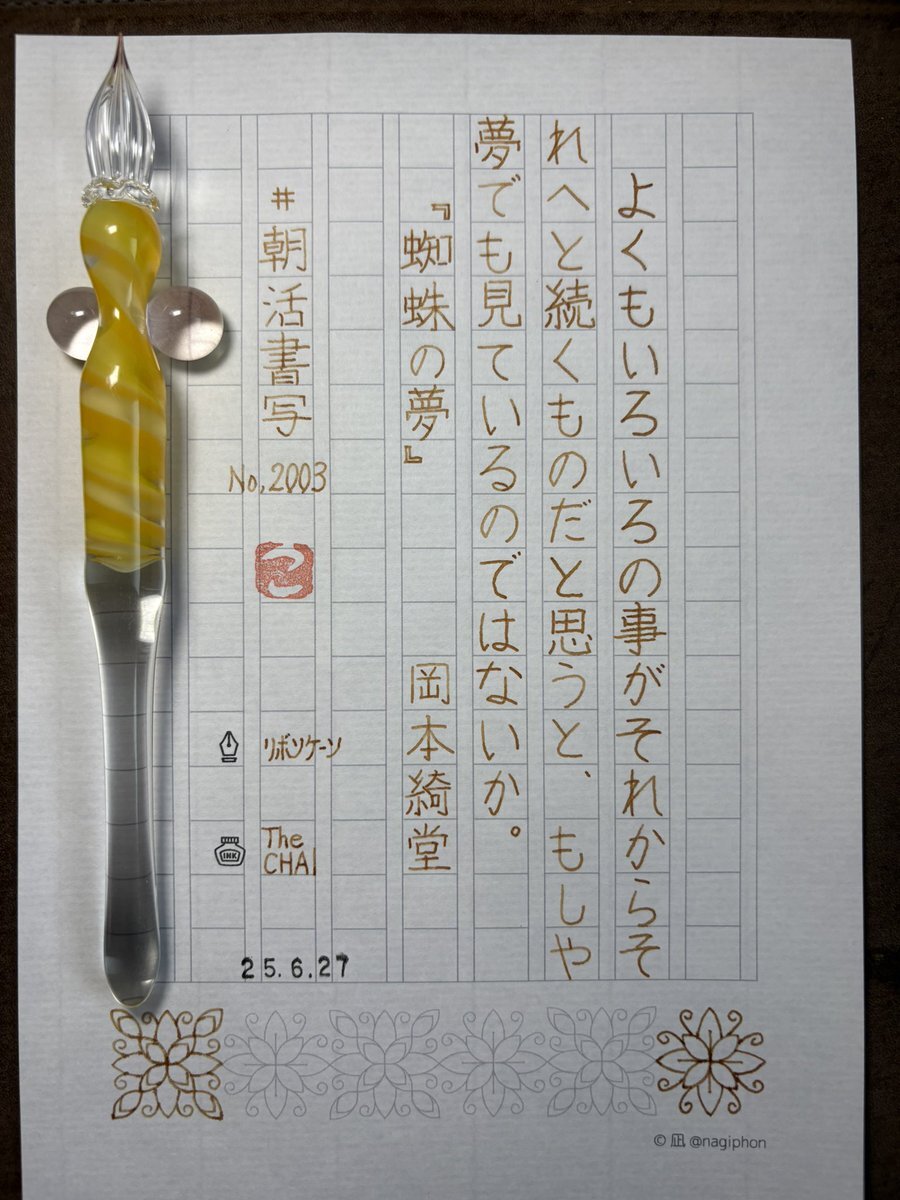 よくもいろいろの事がそれからそ
れへと続くものだと思うと、もしや
夢でも見ているのではないか。
『蜘蛛の夢』 岡本綺堂
#朝活書写
No,2003
つこ
リボンケーン
INK
The
CHAI
25.6.27
© 凪 @nagiphon